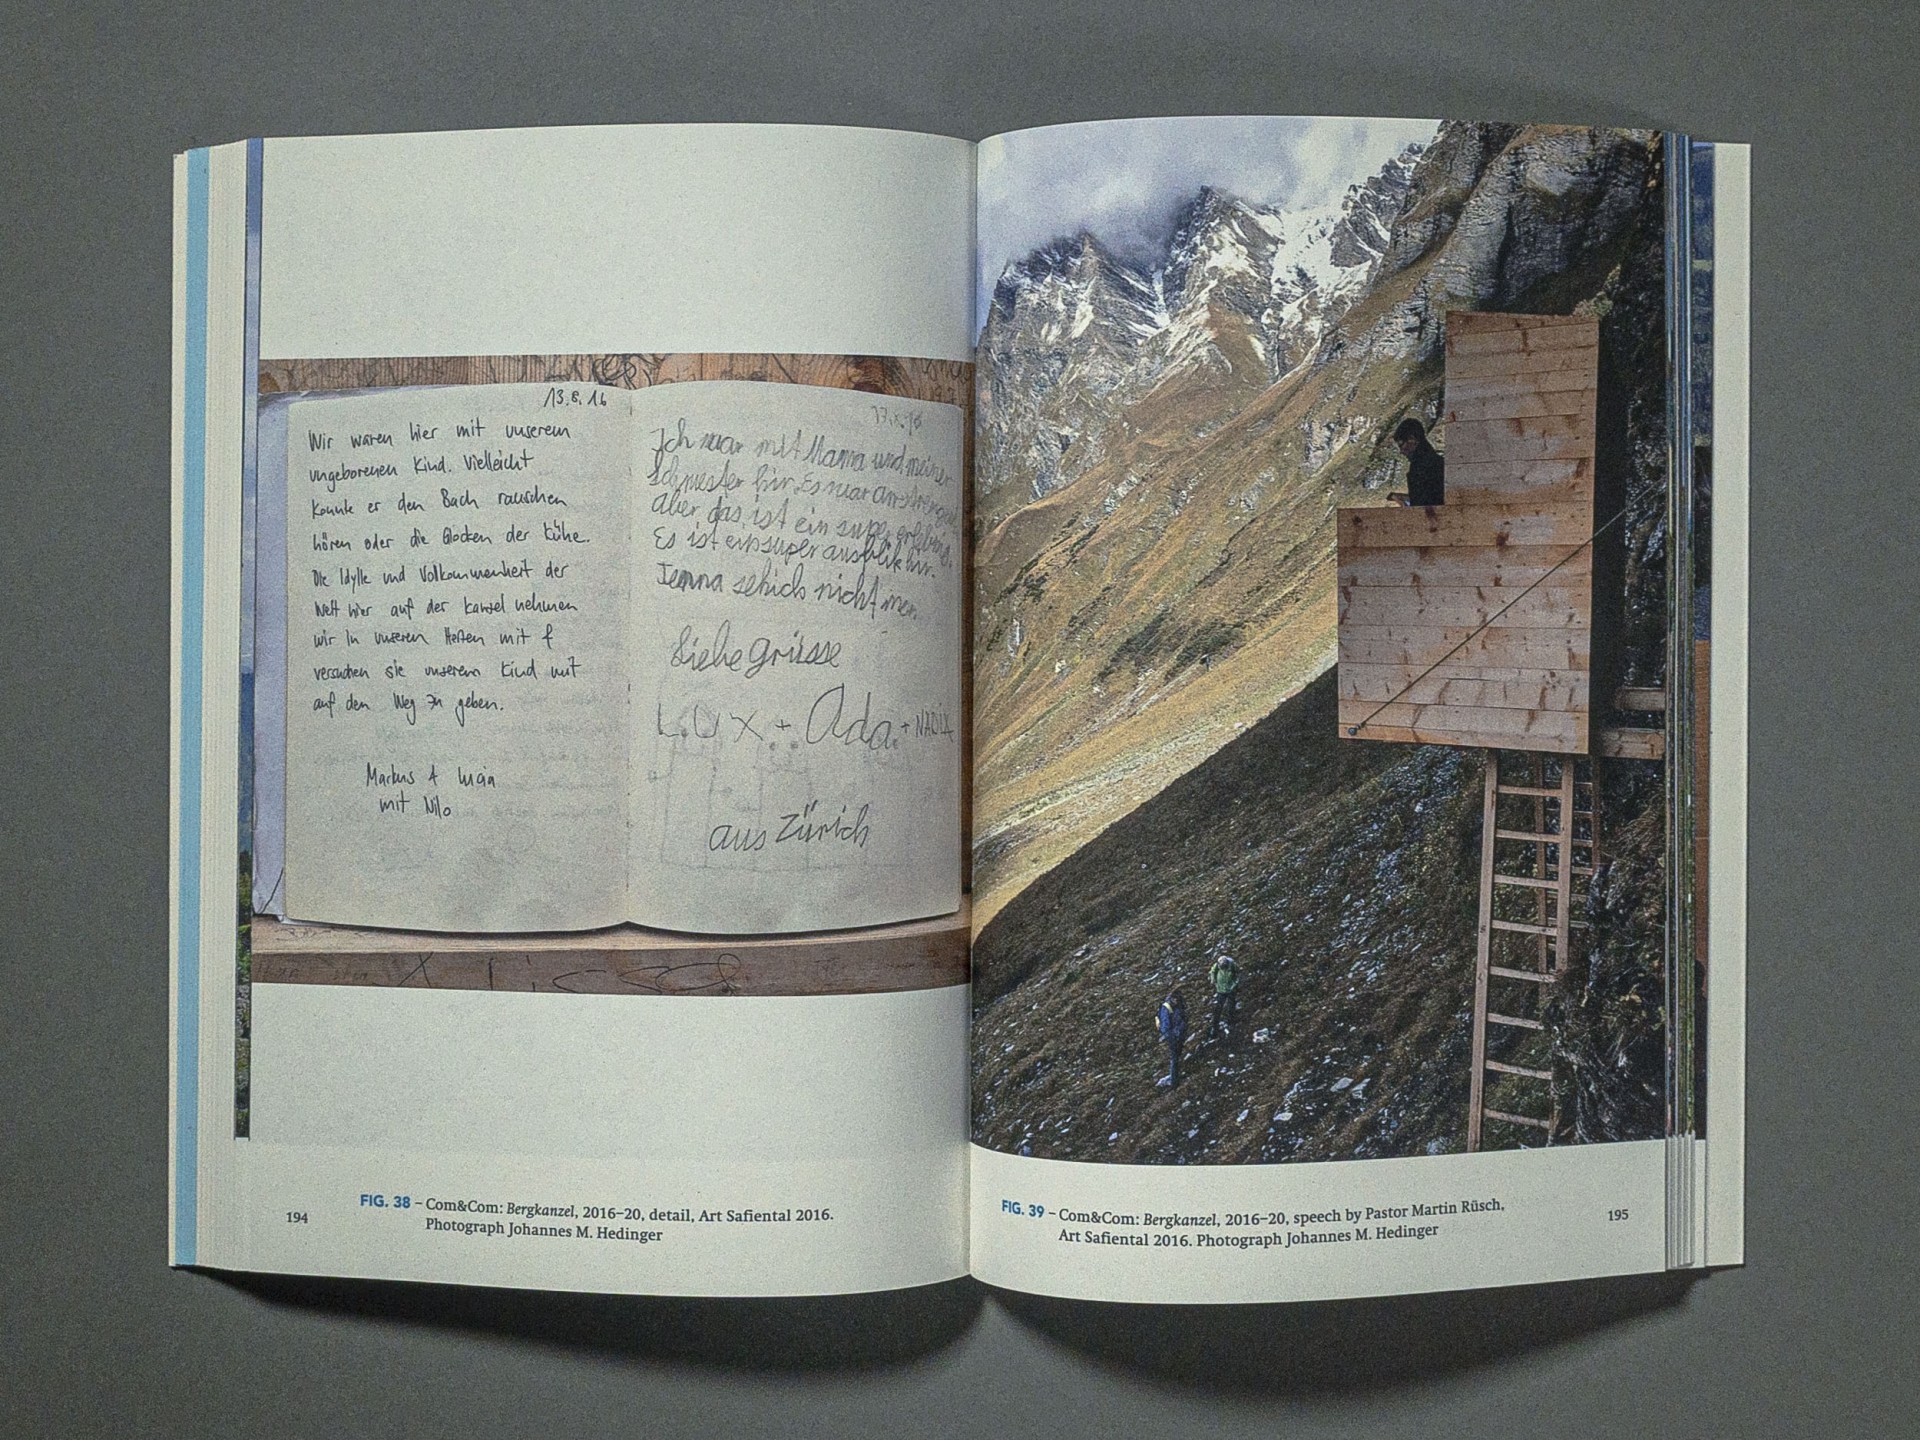 13.8.16
Wir waren hier mit unserem
ungeborenen Kind. Vielleicht
konnte er den Bach rauschen
hören oder die Glocken der Kühe.
Die Idylle und Vollkommenheit der
Welt hier auf der Kanzel nehmen
wir in unseren Herzen mit &
versuchen sie unserem Kind mit
auf den Weg zu geben.
Markus & Lucia
mit Nilo
Ich war mit Mama und meiner
Schwester hir. Es war
Aber das ist ein super
Es ist ein super ausblik hir.
nicht
Liebe Grüsse
LUX + Ada. + NADIA
aus Zürich
194
FIG. 38 – Com&Com: Bergkanzel, 2016–20, detail, Art Safiental 2016.
Photograph Johannes M. Hedinger
FIG. 39 – Com&Com: Bergkanzel, 2016–20, speech by Pastor Martin Rüsch,
Art Safiental 2016. Photograph Johannes M. Hedinger
195